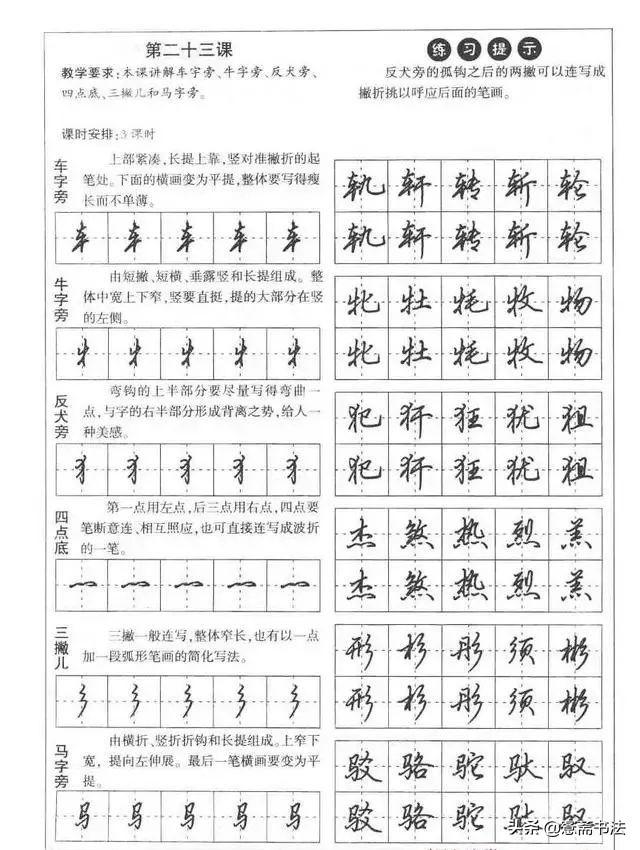 第二十三课
教学要求:本课讲解车字旁、牛字旁、反犬旁、
四点底、三撇儿和马字旁。
课时安排:3课时
练习提示
反犬旁的弧钩之后的两撇可以连写成
撇折挑以呼应后面的笔画。
车字旁
上部紧凑,长提上靠,竖对准撇折的起
笔处。下面的横画变为平提,整体要写得瘦
长而不单薄。
车 车 车 车 车
轨 轩 转 斩 轮
轨 轩 转 斩 轮
牛字旁
由短撇、短横、垂露竖和长提组成。整
体中宽上下窄,竖要直挺,提的大部分在竖
的左侧。
牜 牜 牜 牜 牜
牝 牡 牦 牧 物
牝 牡 牦 牧 物
反犬旁
弯钩的上半部分要尽量写得弯曲一
点,与字的右半部分形成背离之势,给人一
种美感。
犭 犭 犭 犭 犭
犯 犴 狂 犹 狙
犯 犴 狂 犹 狙
四点底
第一点用左点,后三点用右点,四点要
笔断意连、相互照应,也可直接连写成波折
的一笔。
灬 灬 灬 灬 灬
杰 煞 热 烈 羔
杰 煞 热 烈 羔
三撇儿
三撇一般连写,整体窄长,也有以一点
加一段弧形笔画的简化写法。
彡 彡 彡 彡 彡
形 杉 彤 须 彬
形 杉 彤 须 彬
马字旁
由横折、竖折折钩和长提组成。上窄下
宽,提向左伸展。最后一笔横画要变为平
提。
马 马 马 马 马
驳 骆 驼 驮 驭
驳 骆 驼 驮 驭
头条@慧斋书法